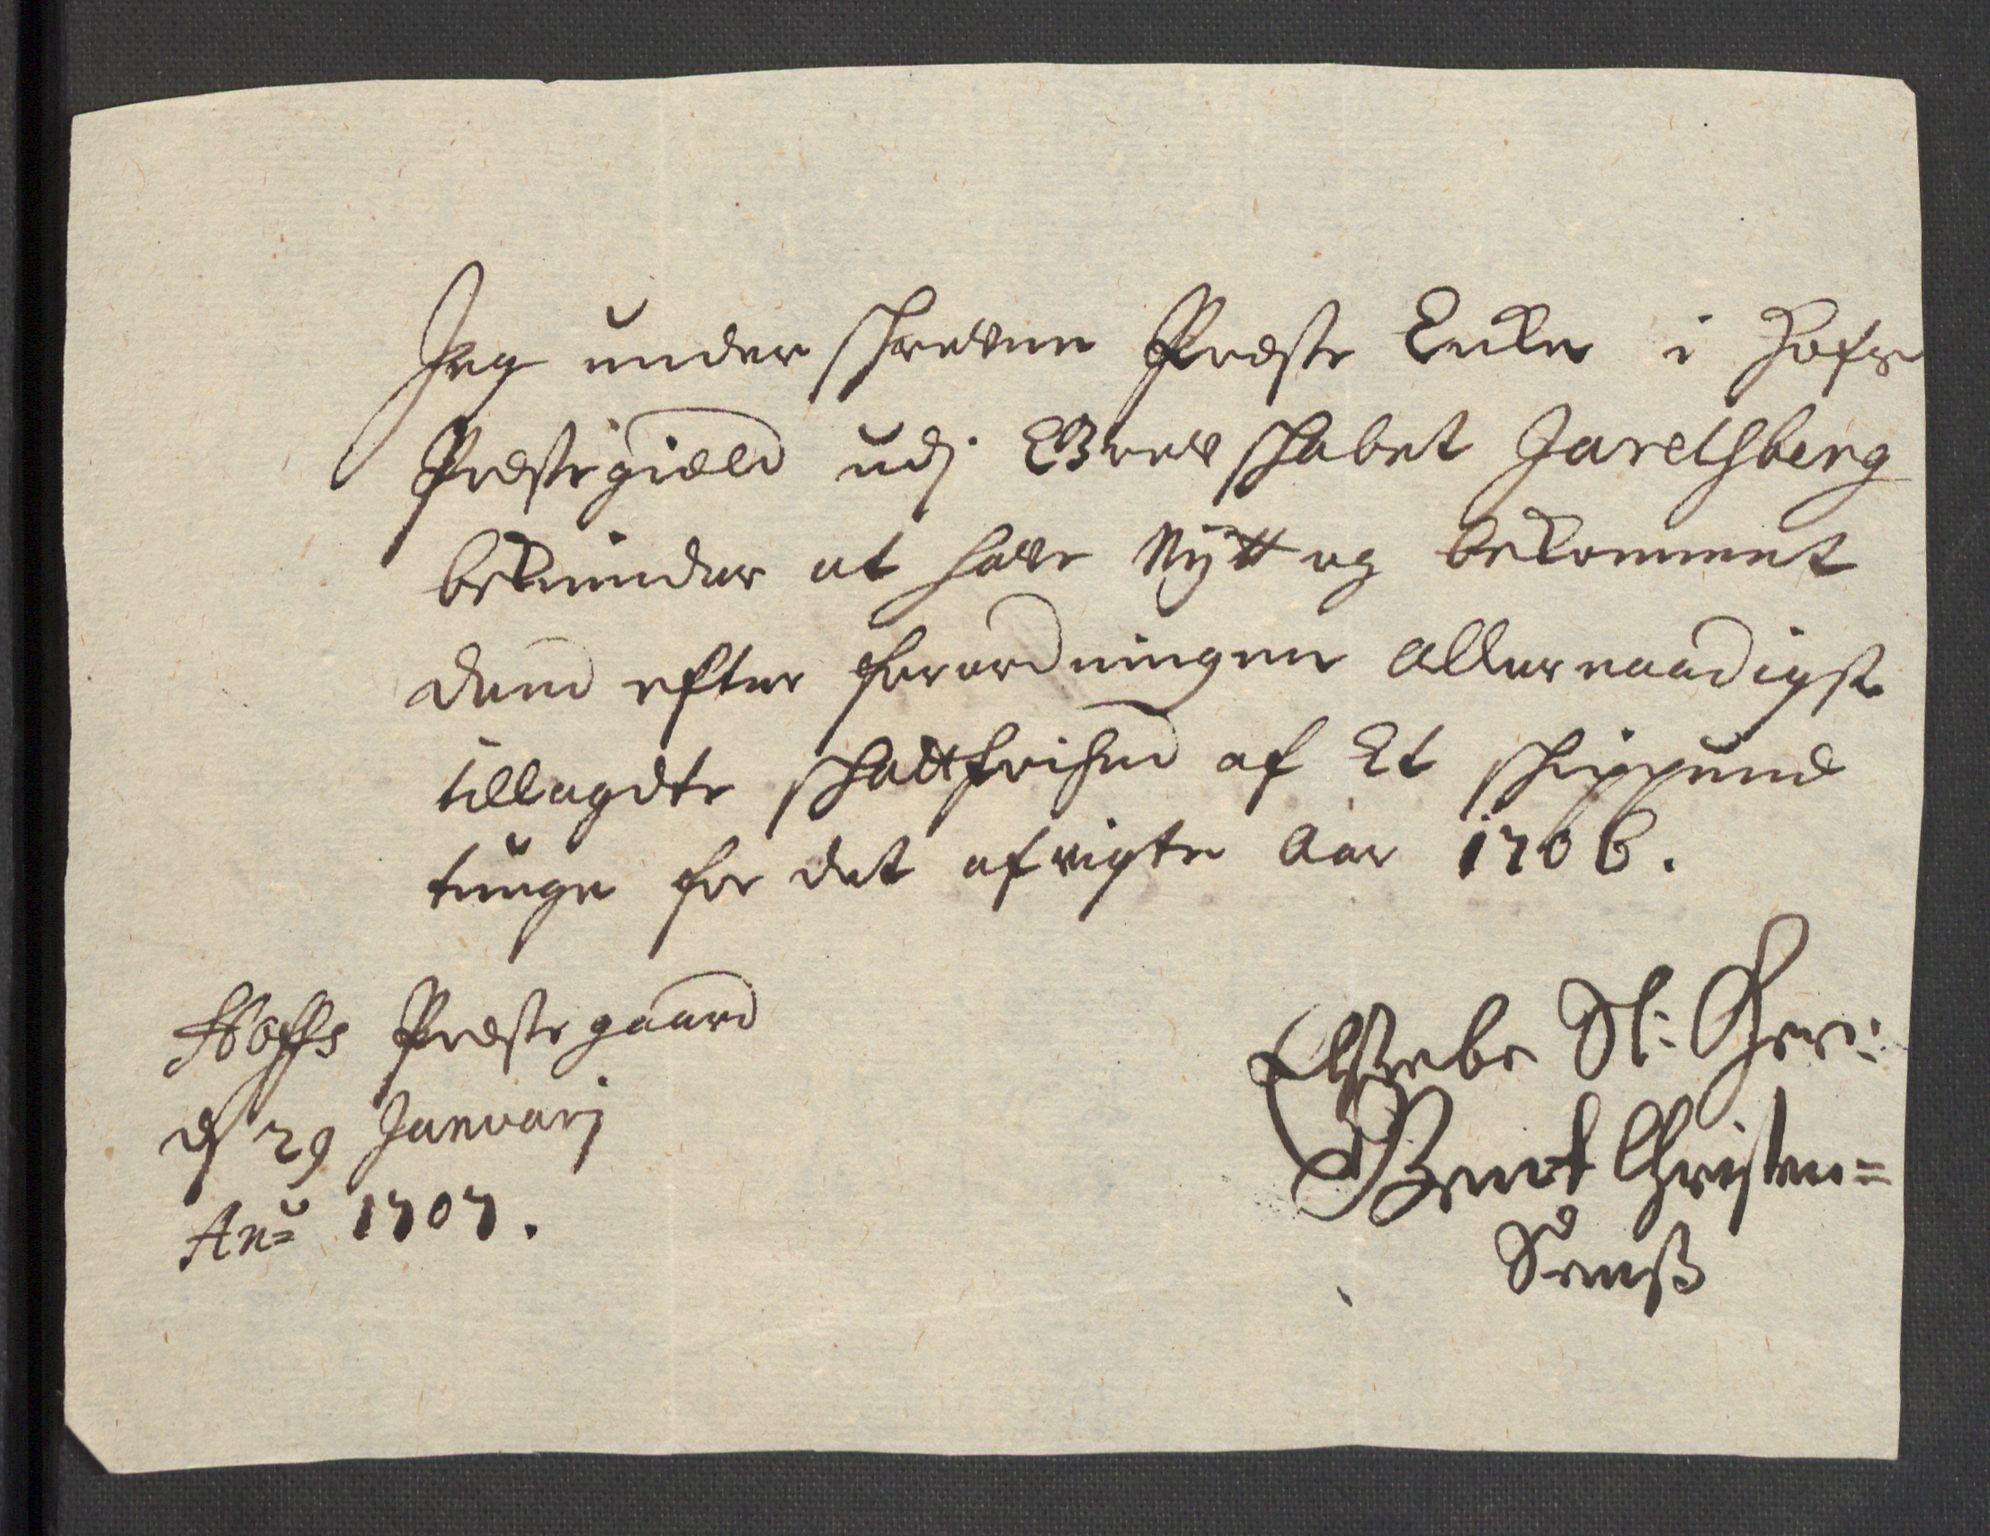 Jeg under schrefne Præste Encke i Hofs
Præstegield udj Grefschabet Jarelsberg
bekiender at hafe Nÿtt og bekommet
dend efter forordningen allernaadigst
tillagdte schattfrihed af Et schippund
tunge for det afvigte Aar 1706.
Hoffs Præstegaard
d 29 Januarj
An= 1707.
Sl: Her:
Bendt Christen=
Sens